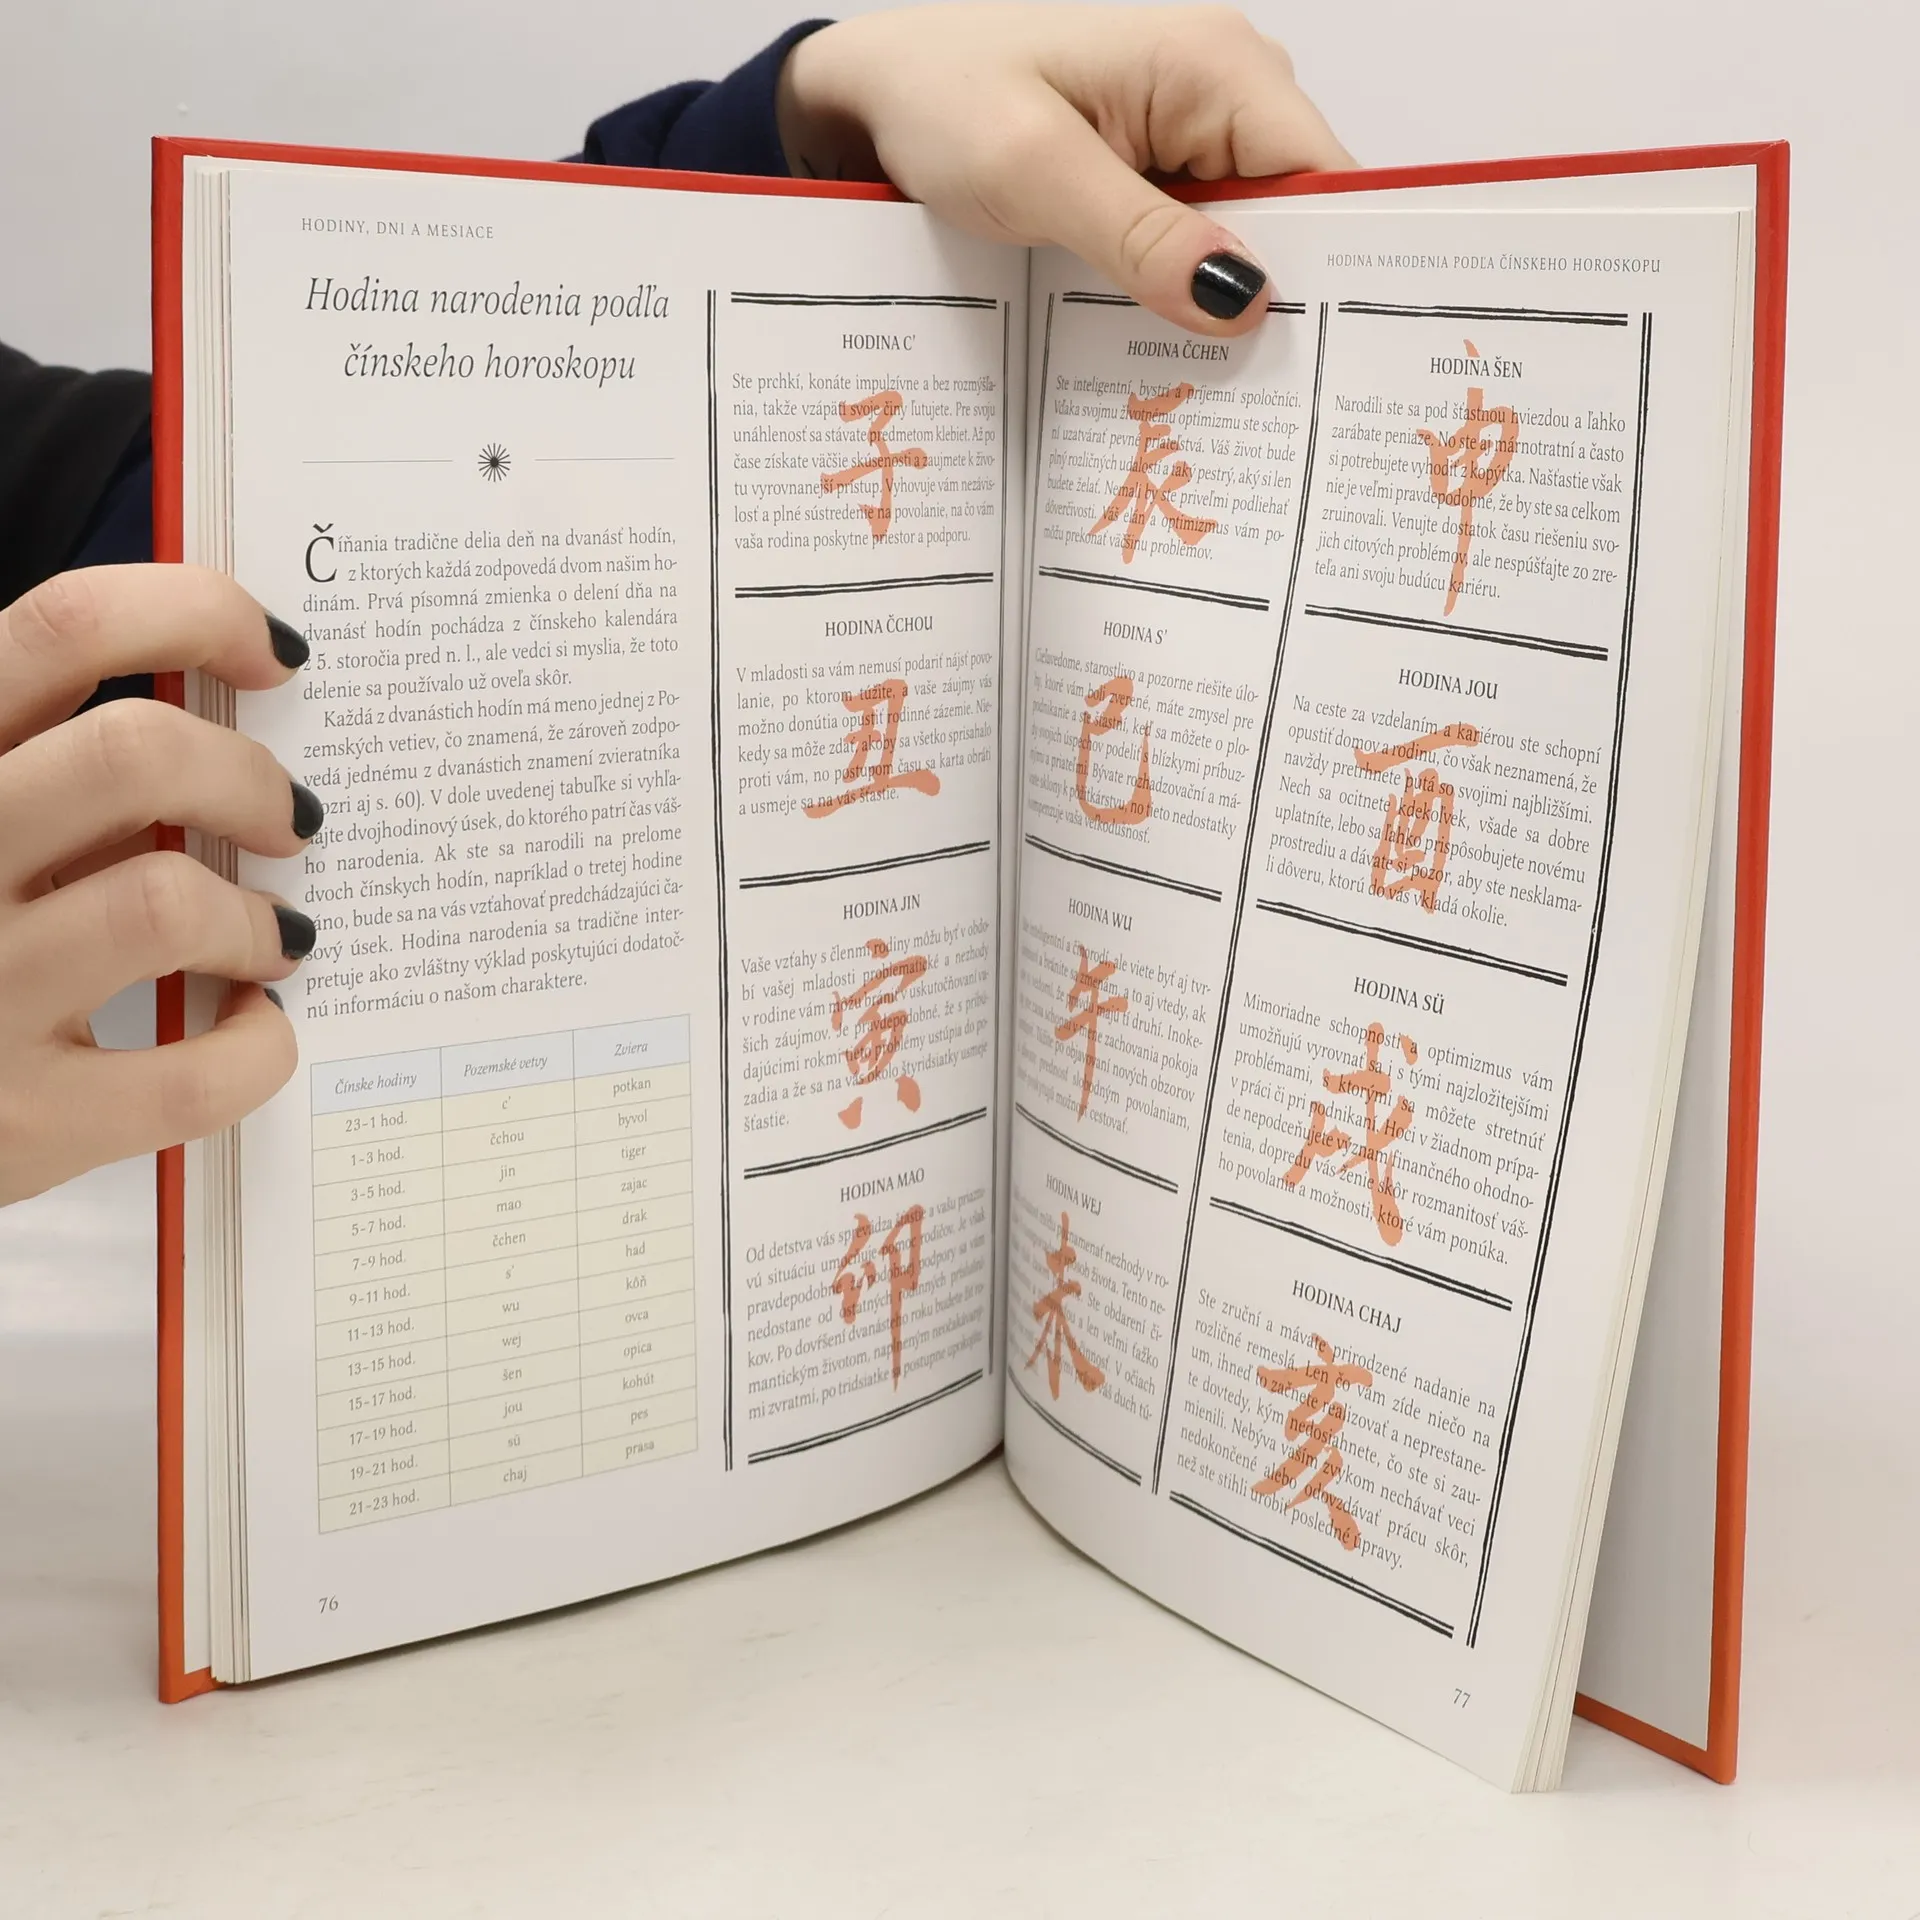 HODINY, DNI A MESIACE
Hodina narodenia podľa
čínskeho horoskopu
Číňania tradične delia deň na dvanásť hodín,
z ktorých každá zodpovedá dvom našim ho-
dinám. Prvá písomná zmienka o delení dňa na
dvanásť hodín pochádza z čínskeho kalendára
z 5. storočia pred n. l., ale vedci si myslia, že toto
delenie sa používalo už oveľa skôr.
Každá z dvanástich hodín má meno jednej z Po-
zemských vetiev, čo znamená, že zároveň zodpo-
vedá jednému z dvanástich znamení zvieratníka
ozri aj s. 60). V dole uvedenej tabuľke si vyhľa-
ajte dvojhodinový úsek, do ktorého patrí čas váš-
ho narodenia. Ak ste sa narodili na prelome
dvoch čínskych hodín, napríklad o tretej hodine
áno, bude sa na vás vzťahovať predchádzajúci ča-
sový úsek. Hodina narodenia sa tradične inter-
pretuje ako zvláštny výklad poskytujúci dodatoč-
nú informáciu o našom charaktere.
Čínske hodiny Pozemské vetvy Zviera
23–1 hod. c' potkan
1–3 hod. čchou byvol
3–5 hod. jin tiger
5–7 hod. mao zajac
7–9 hod. čchen drak
9–11 hod. s' had
11–13 hod. wu kôň
13–15 hod. wej ovca
15–17 hod. šen opica
17–19 hod. jou kohút
19–21 hod. sü pes
21–23 hod. chaj prasa
76
HODINA C'
子
Ste prchkí, konáte impulzívne a bez rozmýšľa-
nia, takže vzápätí svoje činy ľutujete. Pre svoju
unáhlenosť sa stávate predmetom klebiet. Až po
čase získate väčšie skúsenosti a zaujmete k živo-
tu vyrovnanejší prístup. Vyhovuje vám nezávis-
losť a plné sústredenie na povolanie, na čo vám
vaša rodina poskytne priestor a podporu.
HODINA ČCHOU
丑
V mladosti sa vám nemusí podariť nájsť povo-
lanie, po ktorom túžite, a vaše záujmy vás
možno donútia opustiť rodinné zázemie. Nie-
kedy sa môže zdať, akoby sa všetko sprisahalo
proti vám, no postupom času sa karta obráti
a usmeje sa na vás šťastie.
HODINA JIN
寅
Vaše vzťahy s členmi rodiny môžu byť v obdo-
bí vašej mladosti problematické a nezhody
v rodine vám môžu brániť v uskutočňovaní va-
šich záujmov. Je pravdepodobné, že s pribú-
dajúcimi rokmi tieto problémy ustúpia do po-
zadia a že sa na vás okolo štyridsiatky usmeje
šťastie.
HODINA MAO
卯
Od detstva vás sprevádza šťastie a vašu
vú situáciu umocňuje pomoc rodičov. Je však
pravdepodobné, že podobnej podpory sa vám
nedostane od ostatných rodinných príslušní-
kov. Po dovŕšení dvanásteho roku budete žiť ro-
mantickým životom, naplneným neočakávaný-
mi zvratmi, po tridsiatke sa postupne upokojíte.
HODINA NARODENIA PODĽA ČÍNSKEHO HOROSKOPU
HODINA ČCHEN
辰
Ste inteligentní, bystrí a príjemní spoločníci.
Vďaka svojmu životnému optimizmu ste schop-
ní uzatvárať pevné priateľstvá. Váš život bude
plný rozličných udalostí a taký pestrý, aký si len
budete želať. Nemali by ste priveľmi podliehať
dôverčivosti. Váš elán a optimizmus vám po-
môžu prekonať väčšinu problémov.
HODINA S'
巳
Cieľavedome, starostlivo a pozorne riešite úlo-
hy, ktoré vám boli zverené, máte zmysel pre
podnikanie a ste šťastní, keď sa môžete o plo-
dy svojich úspechov podeliť s blízkymi príbuz-
nými a priateľmi. Bývate rozhadzovační a má-
te sklony k pôžitkárstvu, no tieto nedostatky
kompenzuje vaša veľkodušnosť.
HODINA WU
午
inteligentní a činorodí, ale viete byť aj tvr-
a bránite sa zmenám, a to aj vtedy, ak
že pravdu majú tí druhí. Inoke-
schopní v mene zachovania pokoja
Túžite po objavovaní nových obzorov
prednosť slobodným povolaniam,
poskytujú možnosť cestovať.
HODINA WEJ
未
poznamenať nezhody v ro-
spôsob života. Tento ne-
Ste obdarení či-
a len veľmi ťažko
činnosť. V očiach
váš duch tú-
HODINA ŠEN
申
Narodili ste sa pod šťastnou hviezdou a ľahko
zarábate peniaze. No ste aj márnotratní a často
si potrebujete vyhodiť z kopýtka. Našťastie však
nie je veľmi pravdepodobné, že by ste sa celkom
zruinovali. Venujte dostatok času riešeniu svo-
jich citových problémov, ale nespúšťajte zo zre-
teľa ani svoju budúcu kariéru.
HODINA JOU
酉
Na ceste za vzdelaním a kariérou ste schopní
opustiť domov a rodinu, čo však neznamená, že
navždy pretrhnete putá so svojimi najbližšími.
Nech sa ocitnete kdekoľvek, všade sa dobre
uplatníte, lebo sa ľahko prispôsobujete novému
prostrediu a dávate si pozor, aby ste nesklama-
li dôveru, ktorú do vás vkladá okolie.
HODINA SÜ
戌
Mimoriadne schopnosti a optimizmus vám
umožňujú vyrovnať sa i s tými najzložitejšími
problémami, s ktorými sa môžete stretnúť
v práci či pri podnikaní. Hoci v žiadnom prípa-
de nepodceňujete význam finančného ohodno-
tenia, dopredu vás ženie skôr rozmanitosť váš-
ho povolania a možnosti, ktoré vám ponúka.
HODINA CHAJ
亥
Ste zruční a mávate prirodzené nadanie na
rozličné remeslá. Len čo vám zíde niečo na
um, ihneď to začnete realizovať a neprestane-
te dovtedy, kým nedosiahnete, čo ste si zau-
mienili. Nebýva vaším zvykom nechávať veci
nedokončené alebo odovzdávať prácu skôr,
než ste stihli urobiť posledné úpravy.
77